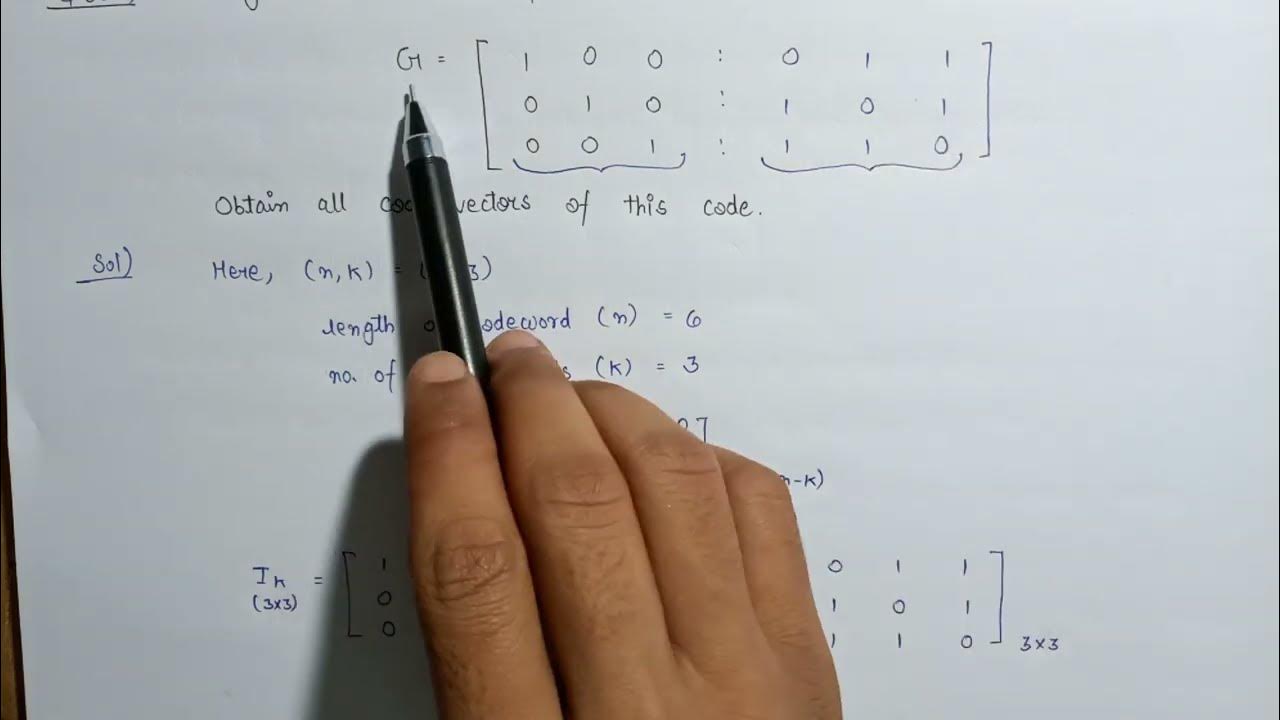 G = [ 1 0 0 : 0 1 1
0 1 0 : 1 0 1
0 0 1 : 1 1 0 ]
Obtain all vectors of this code.
Sol) Here, (n, k) = 3)
length codeword (n) = 6
no. of (k) = 3
]
n-k)
I k = [ 1 0 1 1
(3x3) 0 1 0 1
0 1 1 0 ] 3x3